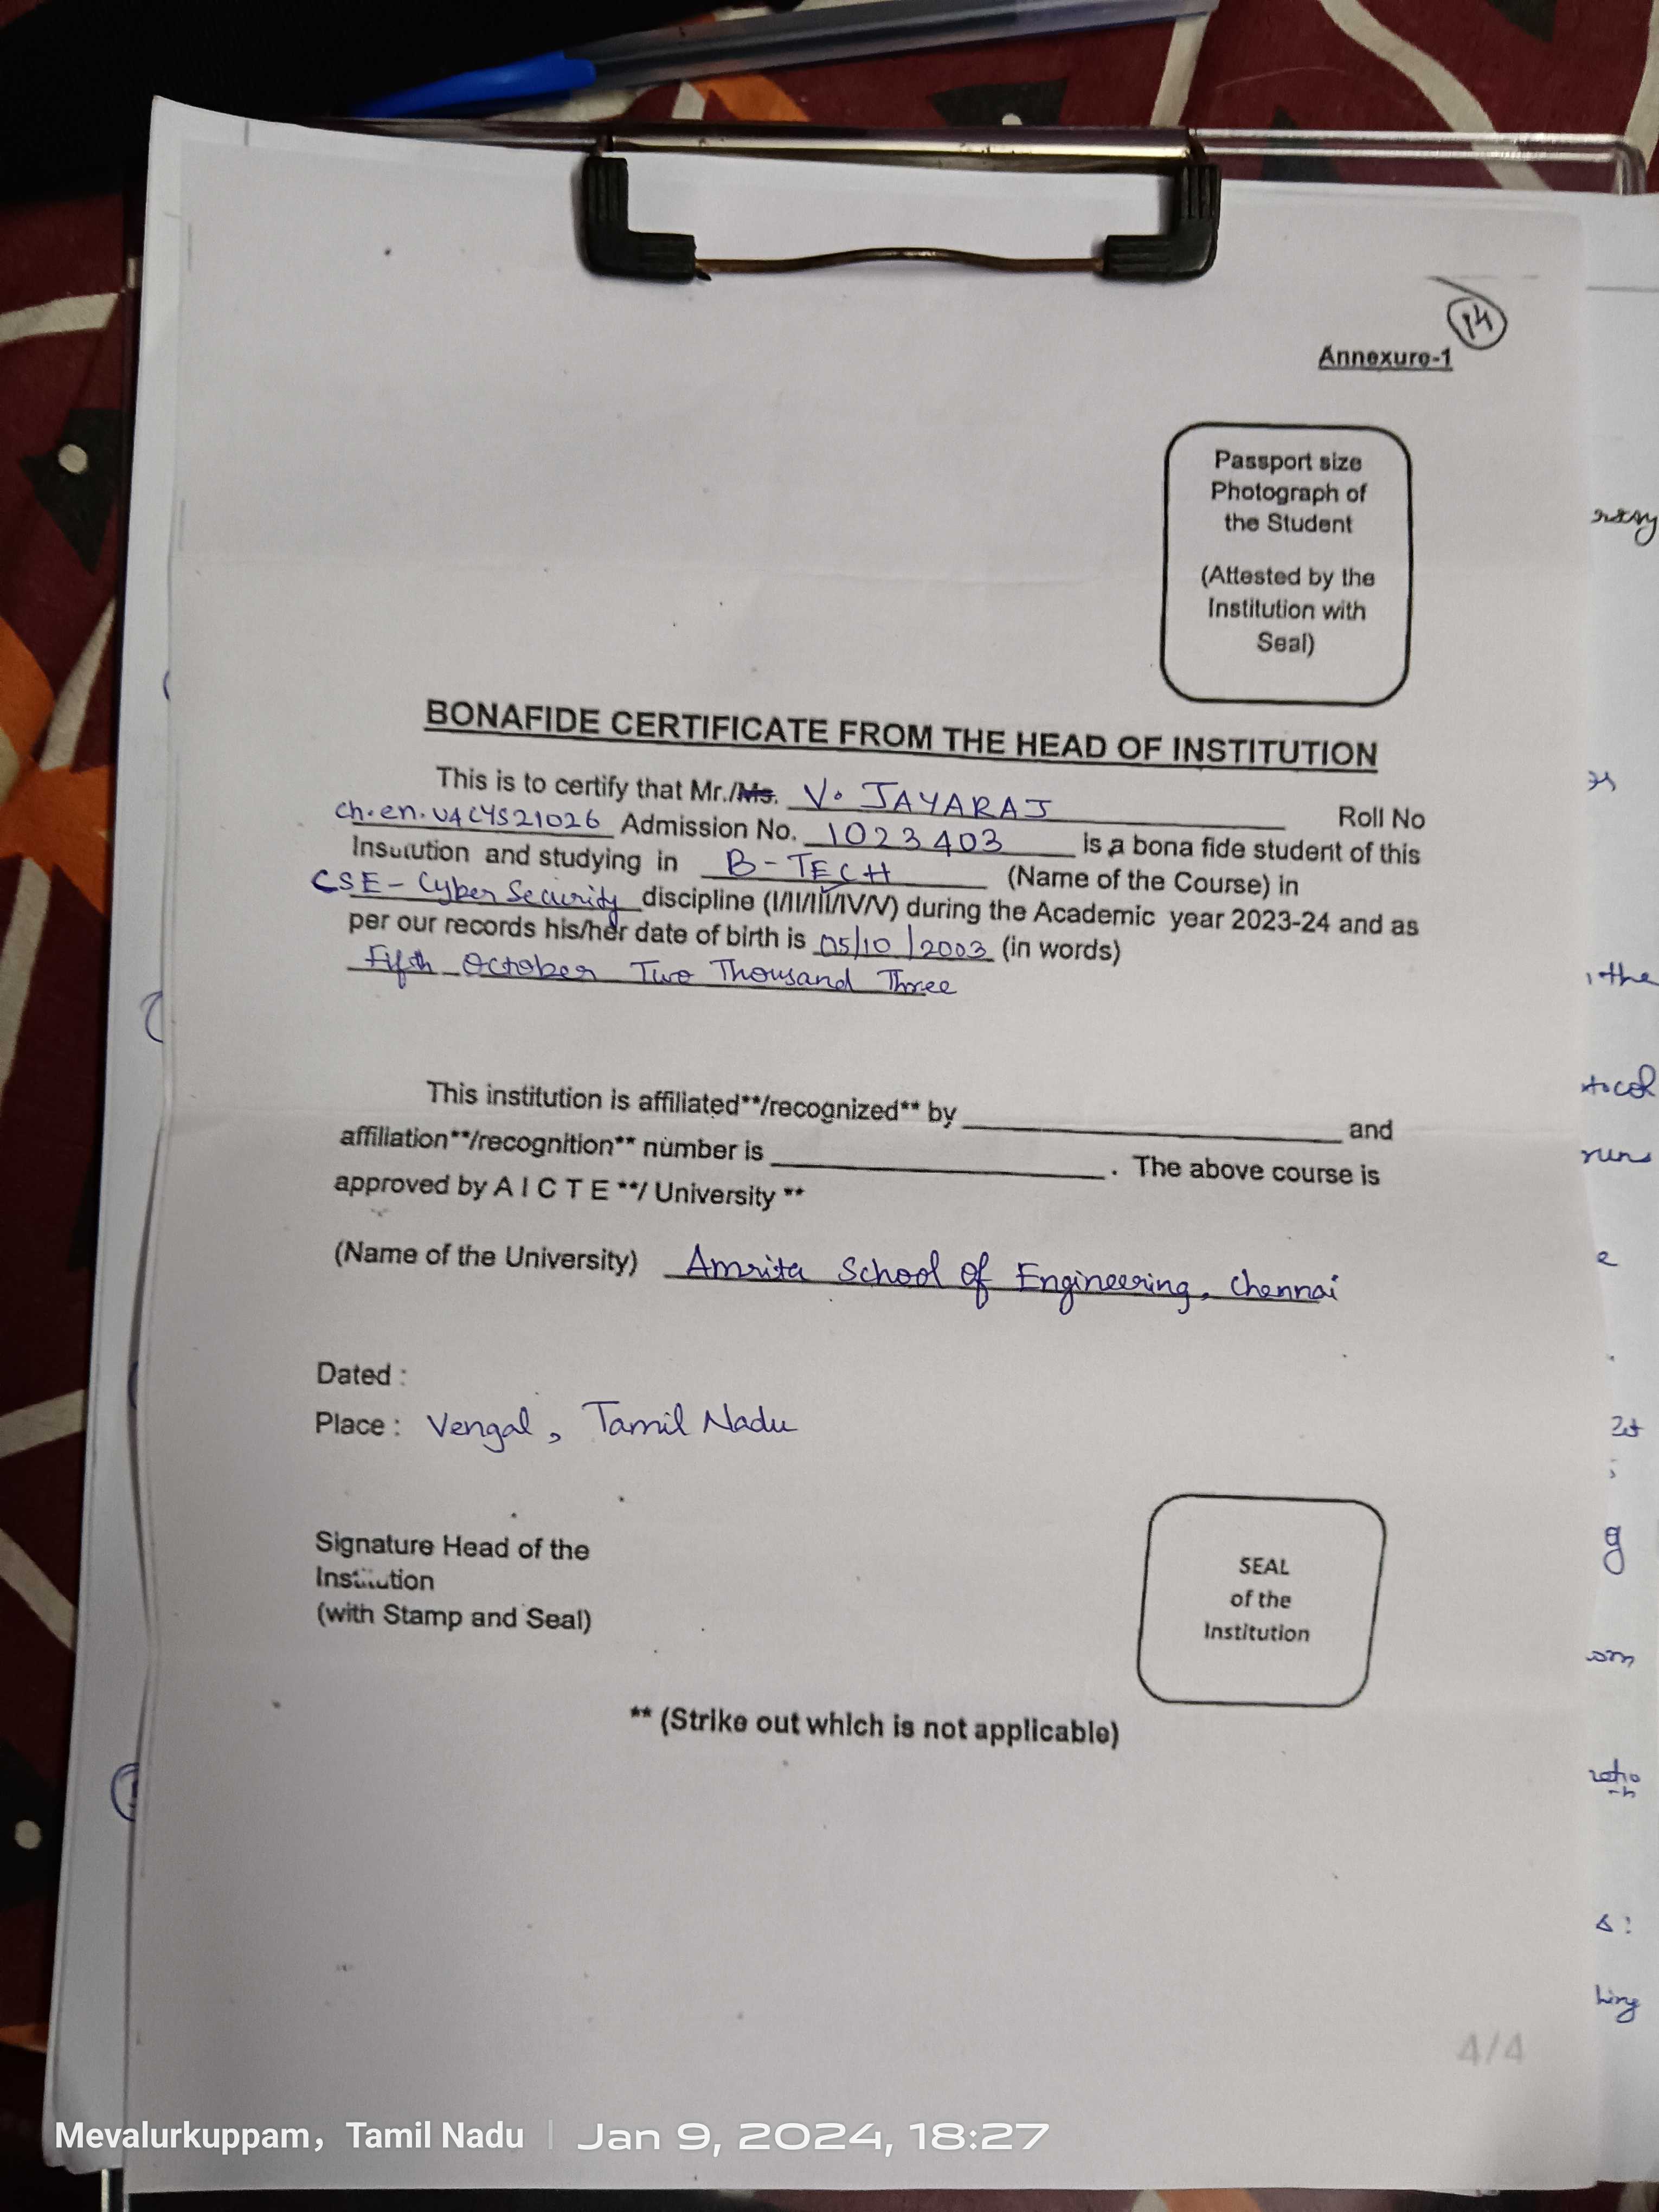 14
Annexure-1
Passport size
Photograph of
the Student
(Attested by the
Institution with
Seal)
BONAFIDE CERTIFICATE FROM THE HEAD OF INSTITUTION
This is to certify that Mr./Ms. V. JAYARAJ Roll No
ch.en.U4CYS21026 Admission No. 1023403 is a bona fide student of this
Institution and studying in B-TECH (Name of the Course) in
CSE - Cyber Security discipline (I/II/III/IV/V) during the Academic year 2023-24 and as
per our records his/her date of birth is 05/10/2003 (in words)
Fifth October Two Thousand Three
This institution is affiliated**/recognized** by and
affiliation**/recognition** number is . The above course is
approved by A I C T E **/ University **
(Name of the University) Amrita School of Engineering, Chennai
Dated :
Place : Vengal, Tamil Nadu
Signature Head of the
Institution
(with Stamp and Seal)
SEAL
of the
Institution
** (Strike out which is not applicable)
4/4
Mevalurkuppam, Tamil Nadu | Jan 9, 2024, 18:27